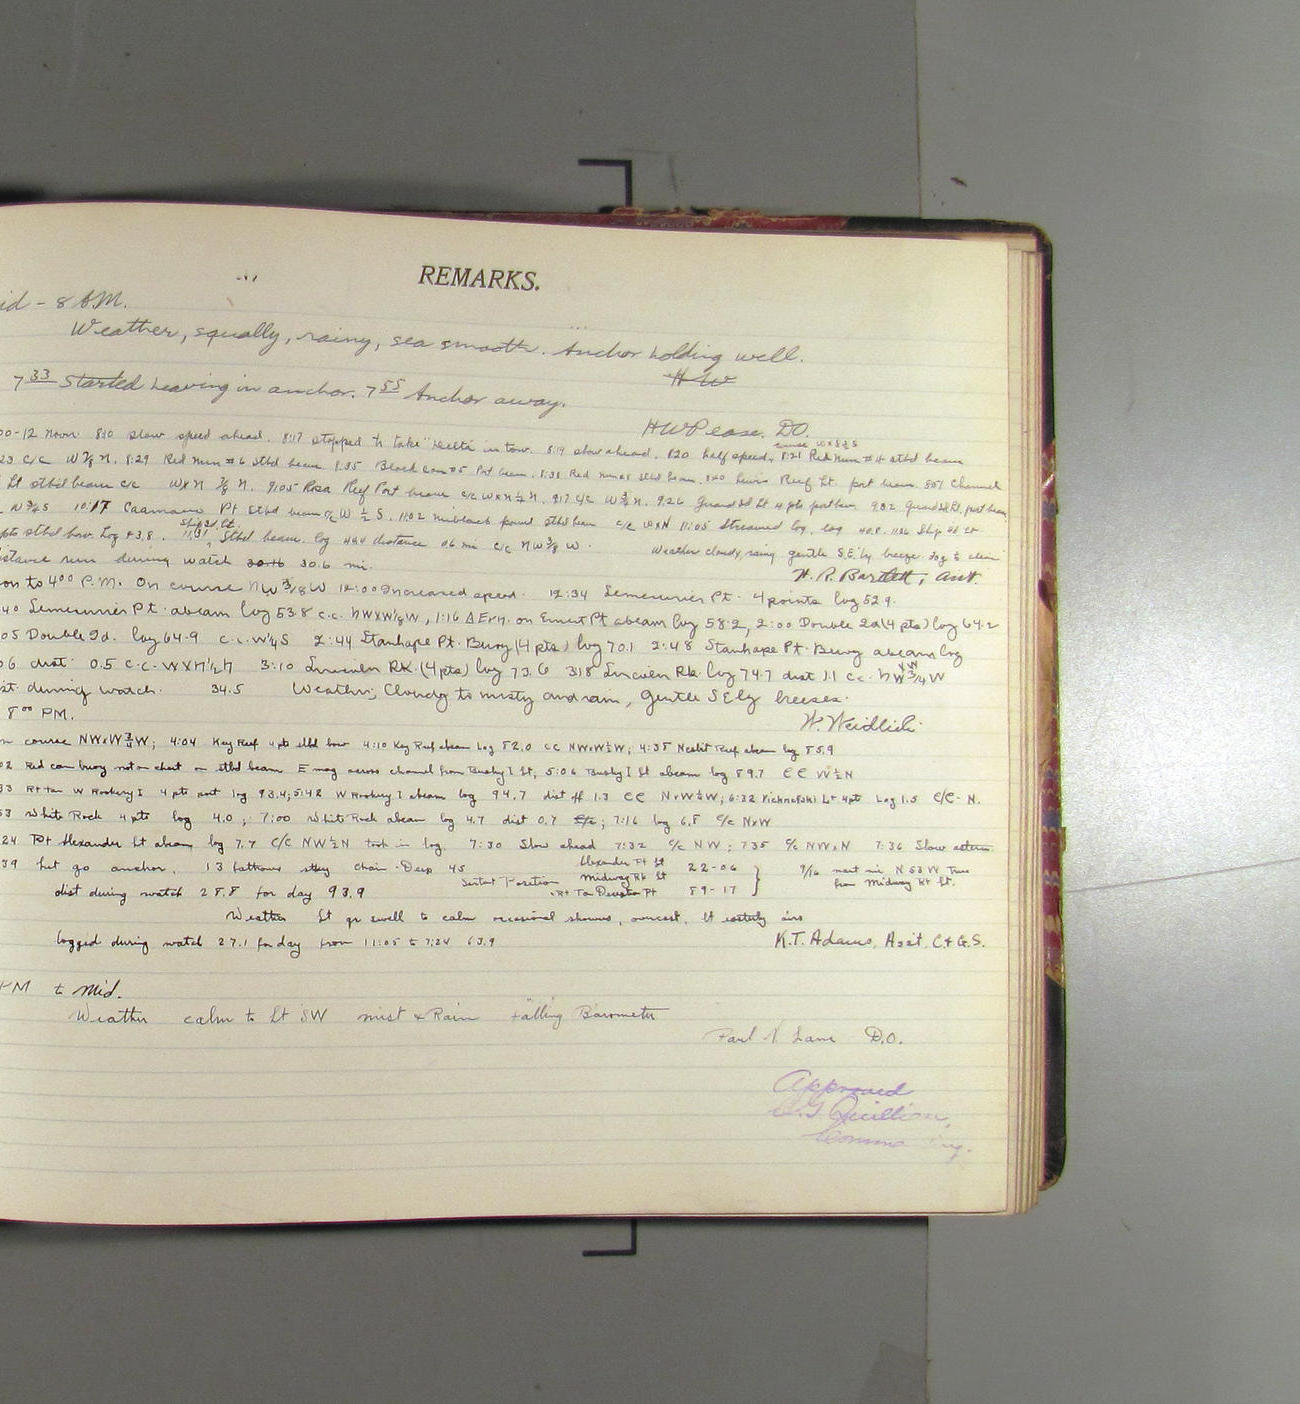 REMARKS.
id - 8 A.M.
Weather, squally, rainy, sea smooth. Anchor holding well.
HW
7 33 Started heaving in anchor. 7 55 Anchor away.
HWPease. D.O.
00-12 Noon 8:10 slow speed ahead. 8:17 stopped to take "Delta" in tow. 8:19 slow ahead. 820 half speed, 8:21 Red Nun #4 stbd beam
23 C/C W 7/8 N. 8:29 Red Nun #6 Stbd beam 8:35 Black Can #5 Port beam. 8:38 Red Nun stbd beam. Lewis Reef Lt. port beam. 857 Channel
Lt stbd beam c/c WXN 7/8 N. 9:05 Rosa Reef Port beam c/c WXN 1/2 N. 917 C/C W 3/4 N. 926 Guard Id Lt 4 pts port bow. 932 Guard Id Lt. port beam
N 3/4 S 10:17 Caamano Pt Stbd beam c/c W 1/2 S. 11:02 Point stbd beam c/c WXN 11:05 Streamed log. log 40.8. 1126 Ship Id Lt
pts stbd bow. Log 43.8. 11:31 Ship Id. Lt. Stbd beam. log 44.4 distance 0.6 mi c/c NW 3/8 W. Weather cloudy, rainy gentle S.E.'ly breeze.
istance run during watch 30.6 mi.
H. R. Bartlett, Asst.
on to 4 00 P.M. On course NW 3/8 W 12:00 Increased speed. 12:34 Lemesurier Pt. 4 points log 52.9.
40 Lemesurier Pt. abeam log 53.8 c.c. NWXW 1/8 W, 1:16 on Ernest Pt abeam log 58.2, 2:00 Double Id (4 pts) log 64.2
05 Double Id. log 64.9 c.c. W 1/4 S 2:44 Stanhope Pt. Buoy (4 pts) log 70.1 2:48 Stanhope Pt. Buoy abeam log
0.6 dist. 0.5 c.c. WXN 1/2 N 3:10 Lincoln Rk. (4 pts) log 73.6 318 Lincoln Rk. log 74.7 dist 1.1 c.c. NWXW 3/4 W
st. during watch. 34.5 Weather; Cloudy to misty and rain, gentle SEly breezes.
W. Weidlich
8 00 PM.
n course NWxW 3/4 W; 4:04 Key Reef 4 pts stbd bow 4:10 Key Reef abeam Log 82.0 CC NWxW 1/2 W; 4:35 Nesbit Reef abeam log 85.9
02 Red can buoy not on chart on stbd beam E mag across channel from Bushy I Lt, 5:06 Bushy I Lt abeam log 89.7 CC W 1/2 N
33 Rt tan W Rookery I 4 pts port log 93.4; 5:42 W Rookery I abeam log 94.7 dist off 1.3 CC NxW 1/2 W; 6:32 Vichnefski Lt 4pts Log 1.5 C/C - N.
53 White Rock 4 pts log 4.0; 7:00 White Rock abeam log 4.7 dist 0.7 C/C; 7:16 log 6.8 C/C NxW
24 Pt Alexander Lt abeam log 7.7 C/C NW 1/2 N took in log. 7:30 Slow ahead 7:32 C/C NW; 735 C/C NWxN 7:36 Slow astern
39 Let go anchor. 13 fathoms stky chain Deep 45
Sextant Position
Alexander Pt Lt
Midway Rk Lt 22-06
Rt Tan Deception Pt 89-17
9/16 naut mi N 53 W True from Midway Rk Lt.
dist during watch 28.8 for day 93.9
Weather Lt gr swell to calm occasional showers, overcast, lt easterly airs
logged during watch 27.1 for day from 11:05 to 7:24 63.9
K.T. Adams, Asst. C.& G.S.
PM to Mid.
Weather calm to Lt SW mist & Rain Falling Barometer
Paul N Lane D.O.
Approved
Quillian,